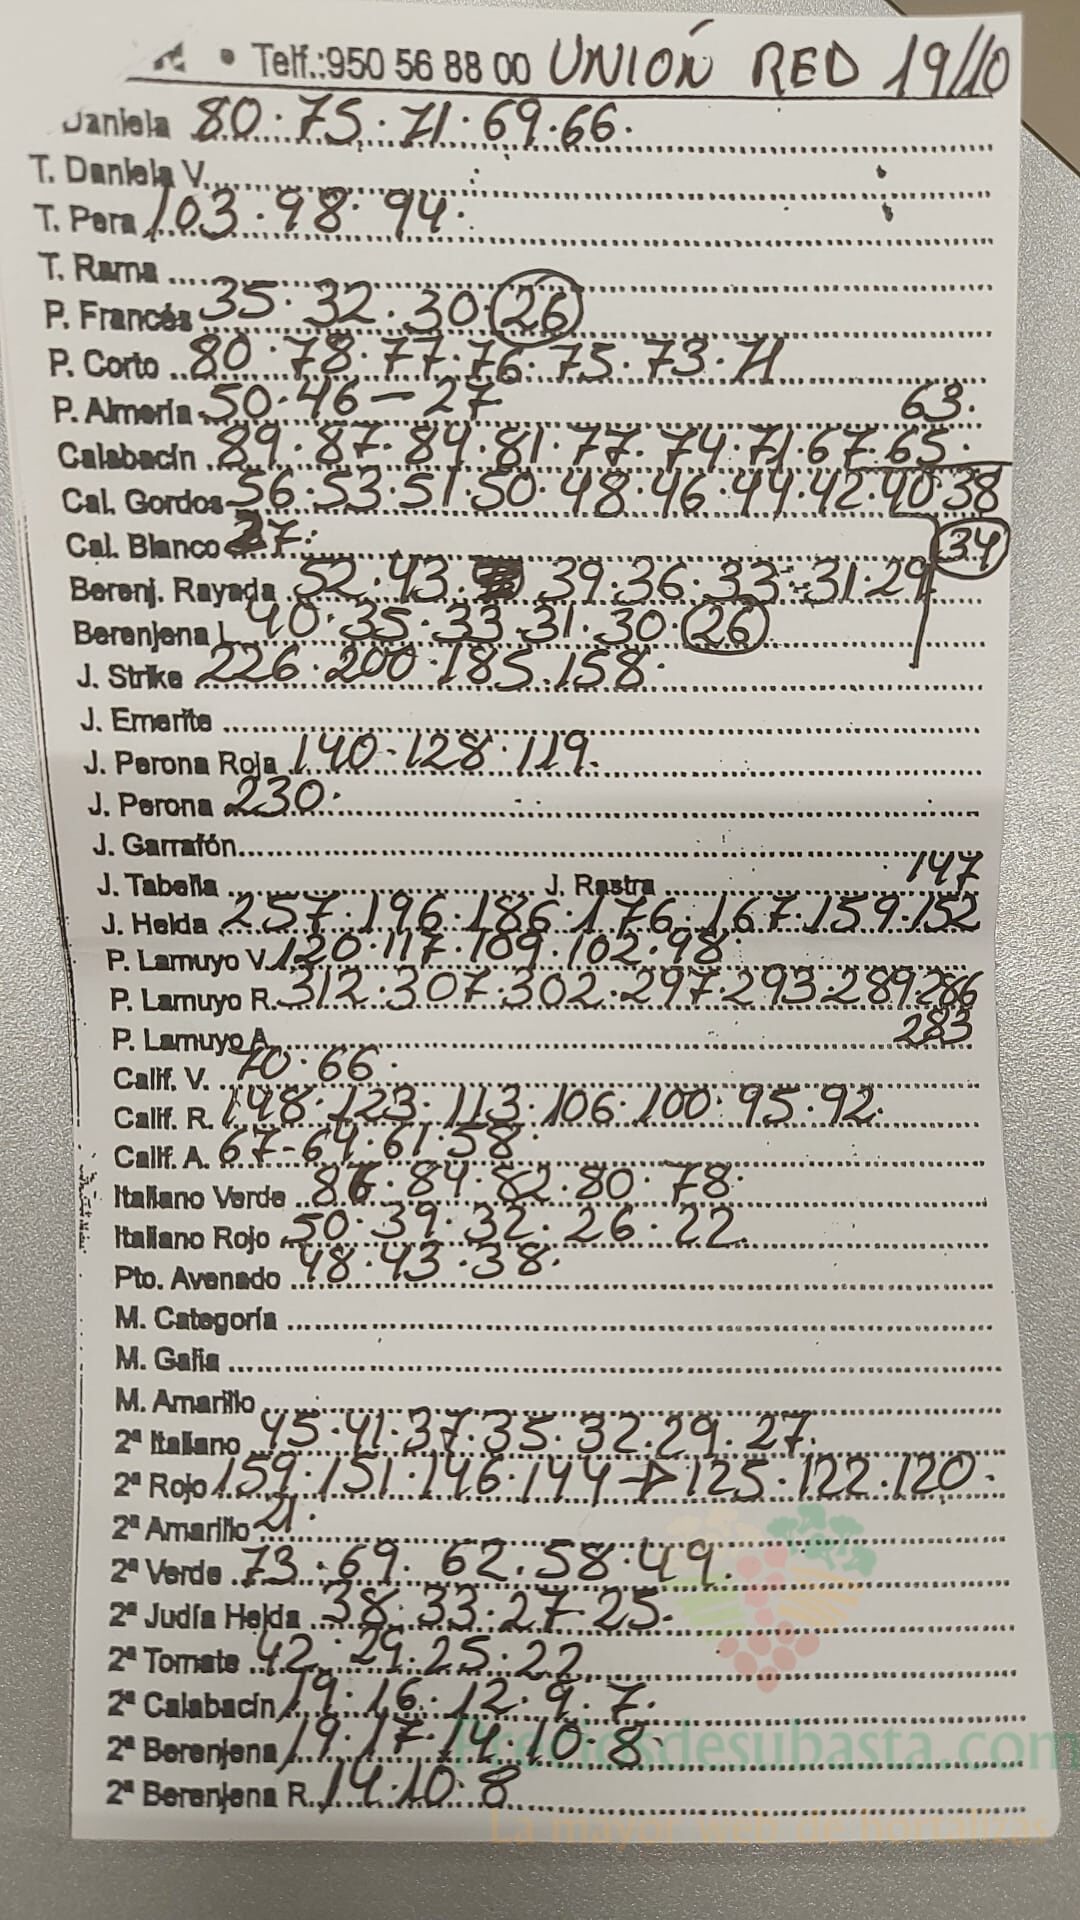 • Telf.:950 56 88 00 UNIÓN RED 19/10
Daniela 80·75·71·69·66·
T. Daniela V.
T. Pera 103·98·94·
T. Rama
P. Francés 35·32·30·26
P. Corto 80·78·77·76·75·73·71
P. Almería 50·46-27 63·
Calabacín 89·87·84·81·77·74·71·67·65·
Cal. Gordos 56·53·51·50·48·46·44·42·40·38
Cal. Blanco 27· 34
Berenj. Rayada 52·43· 39·36·33·31·29
Berenjena L. 40·35·33·31·30·26
J. Strike 226·200·185·158·
J. Emerite
J. Perona Roja 140-128·119·
J. Perona 230·
J. Garrafón
147
J. Tabella J. Rastra
J. Helda 257·196·186·176·167·159·152
P. Lamuyo V. 120·117·109·102·98·
P. Lamuyo R. 312·307·302·297·293·289·286
P. Lamuyo A. 283
Calif. V. 70·66·
Calif. R. 148·123·113·106·100·95·92·
Calif. A. 67-64·61·58·
Italiano Verde 86·84·82·80·78·
Italiano Rojo 50·39·32·26·22·
Pto. Avenado 48·43·38·
M. Categoría
M. Galia
M. Amarillo
2ª Italiano 45·41·37·35·32·29·27·
2ª Rojo 159·151·146·144→125·122·120·
2ª Amarillo 21·
2ª Verde 73·69·62·58·49·
2ª Judía Helda 38·33·27·25·
2ª Tomate 42·29·25·22
2ª Calabacín 19·16·12·9·7·
2ª Berenjena 19·17·14·10·8·
Preciosdesubasta.com
2ª Berenjena R. 14·10·8
La mayor web de hortalizas